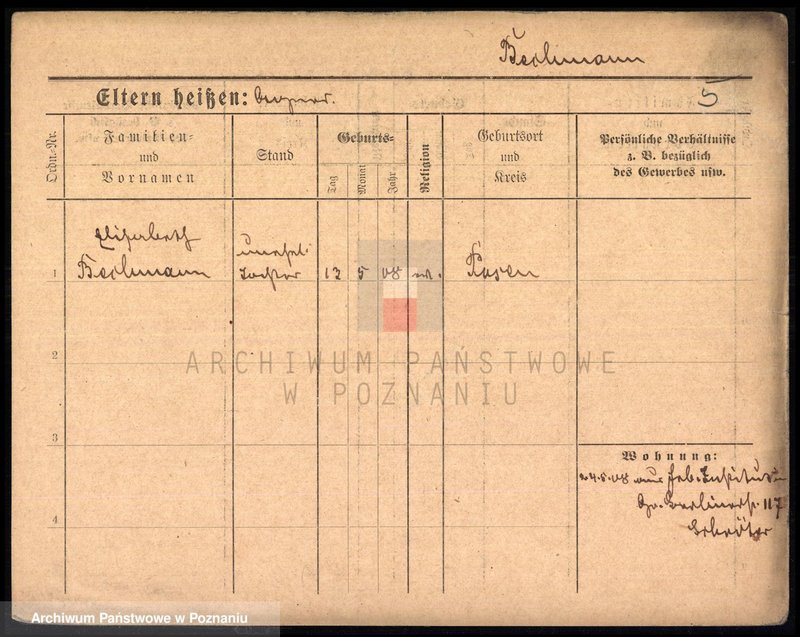 Bechmann
Eltern heißen:
5
Ordn.-Nr.
Familien-
und
Vornamen
Stand
Geburts-
Tag
Monat
Jahr
Religion
Geburtsort
und
Kreis
Persönliche Verhältnisse
z. B. bezüglich
des Gewerbes usw.
Elisabeth
unehel.
1 Bechmann Tochter 12 5 08 ev. Posen
2
3
Wohnung:
4.5.08 aus Heb. Institut
Gr. Berlinerstr. 117
4
ARCHIWUM PAŃSTWOWE
W POZNANIU
Archiwum Państwowe w Poznaniu